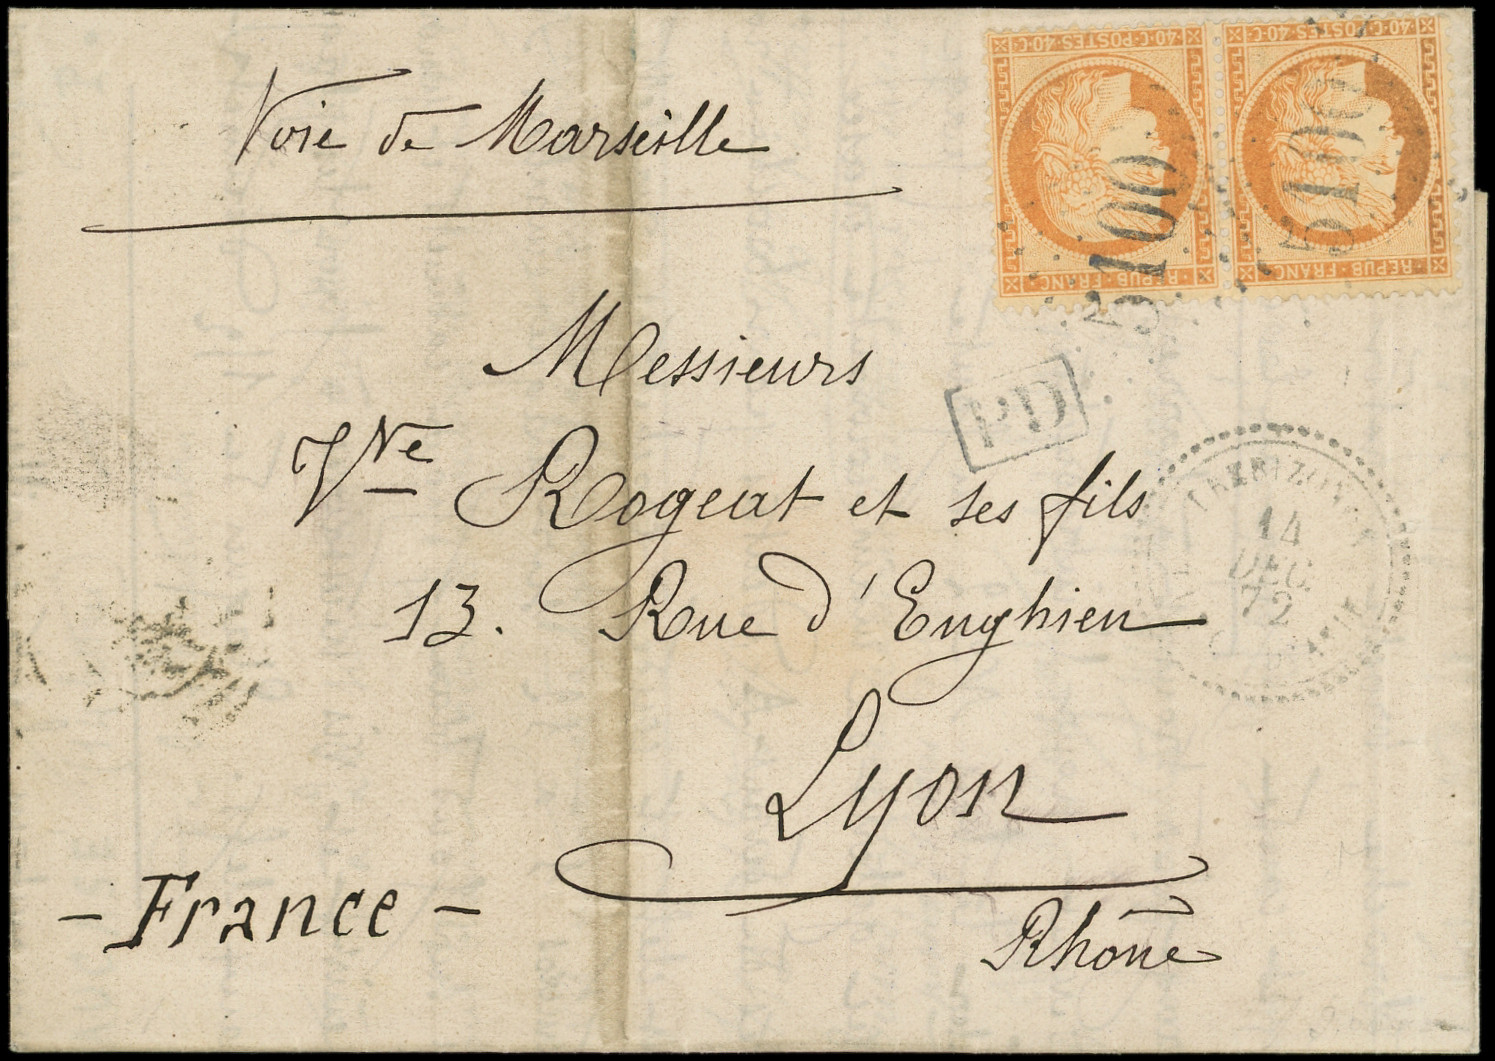 Voie de Marseille
40·C·POSTES·40·C
40·C·POSTES·40·C
REPUB·FRANC
REPUB·FRANC
5100
5100
Messieurs
PD
Vve Rogeat et ses fils
13. Rue d'Enghien
TREBIZONDE
14
DEC
72
Lyon
- France -
Rhône